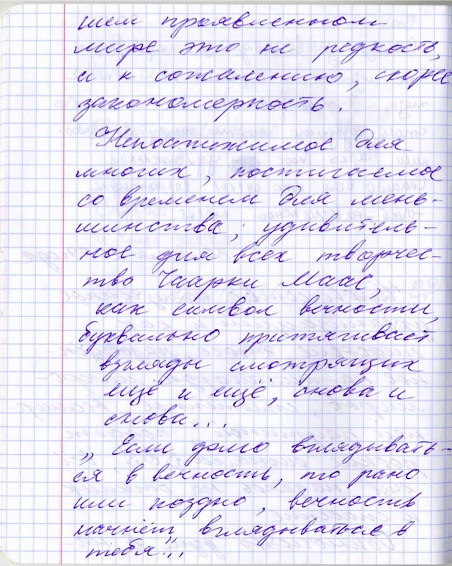 шем проявленном
мире это не редкость,
а к сожалению, скорее
закономерность.
Непостижимое для
многих, постигаемое
со временем для мень-
шинства, удивитель-
ное для всех творчес-
тво Чаарки Маас,
как символ вечности,
буквально притягивает
взгляды смотрящих
ещё и ещё, снова и
снова...
„Если долго вглядывать-
ся в вечность, то рано
или поздно, вечность
начнёт вглядываться в
тебя"...